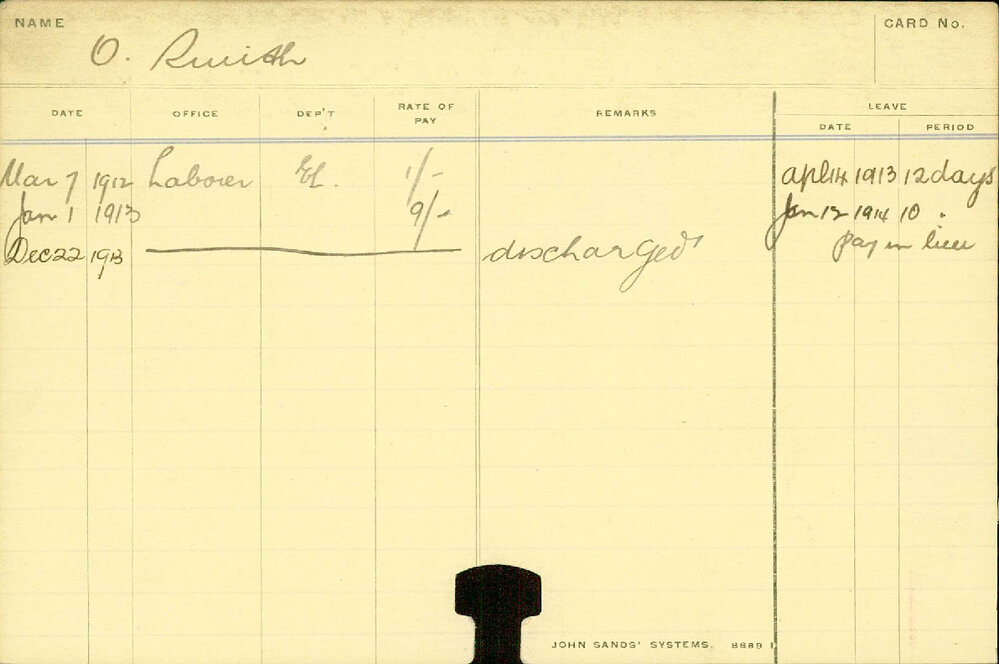 NAME
CARD No.
O. Smith
DATE OFFICE DEP'T RATE OF PAY REMARKS LEAVE
DATE PERIOD
Mar 7 1912 Laborer EL. 1/- apl 14 1913 12 days
Jan 1 1913 9/- Jan 12 1914 10 "
Dec 22 1913 discharged pay in lieu
JOHN SANDS' SYSTEMS. 8689